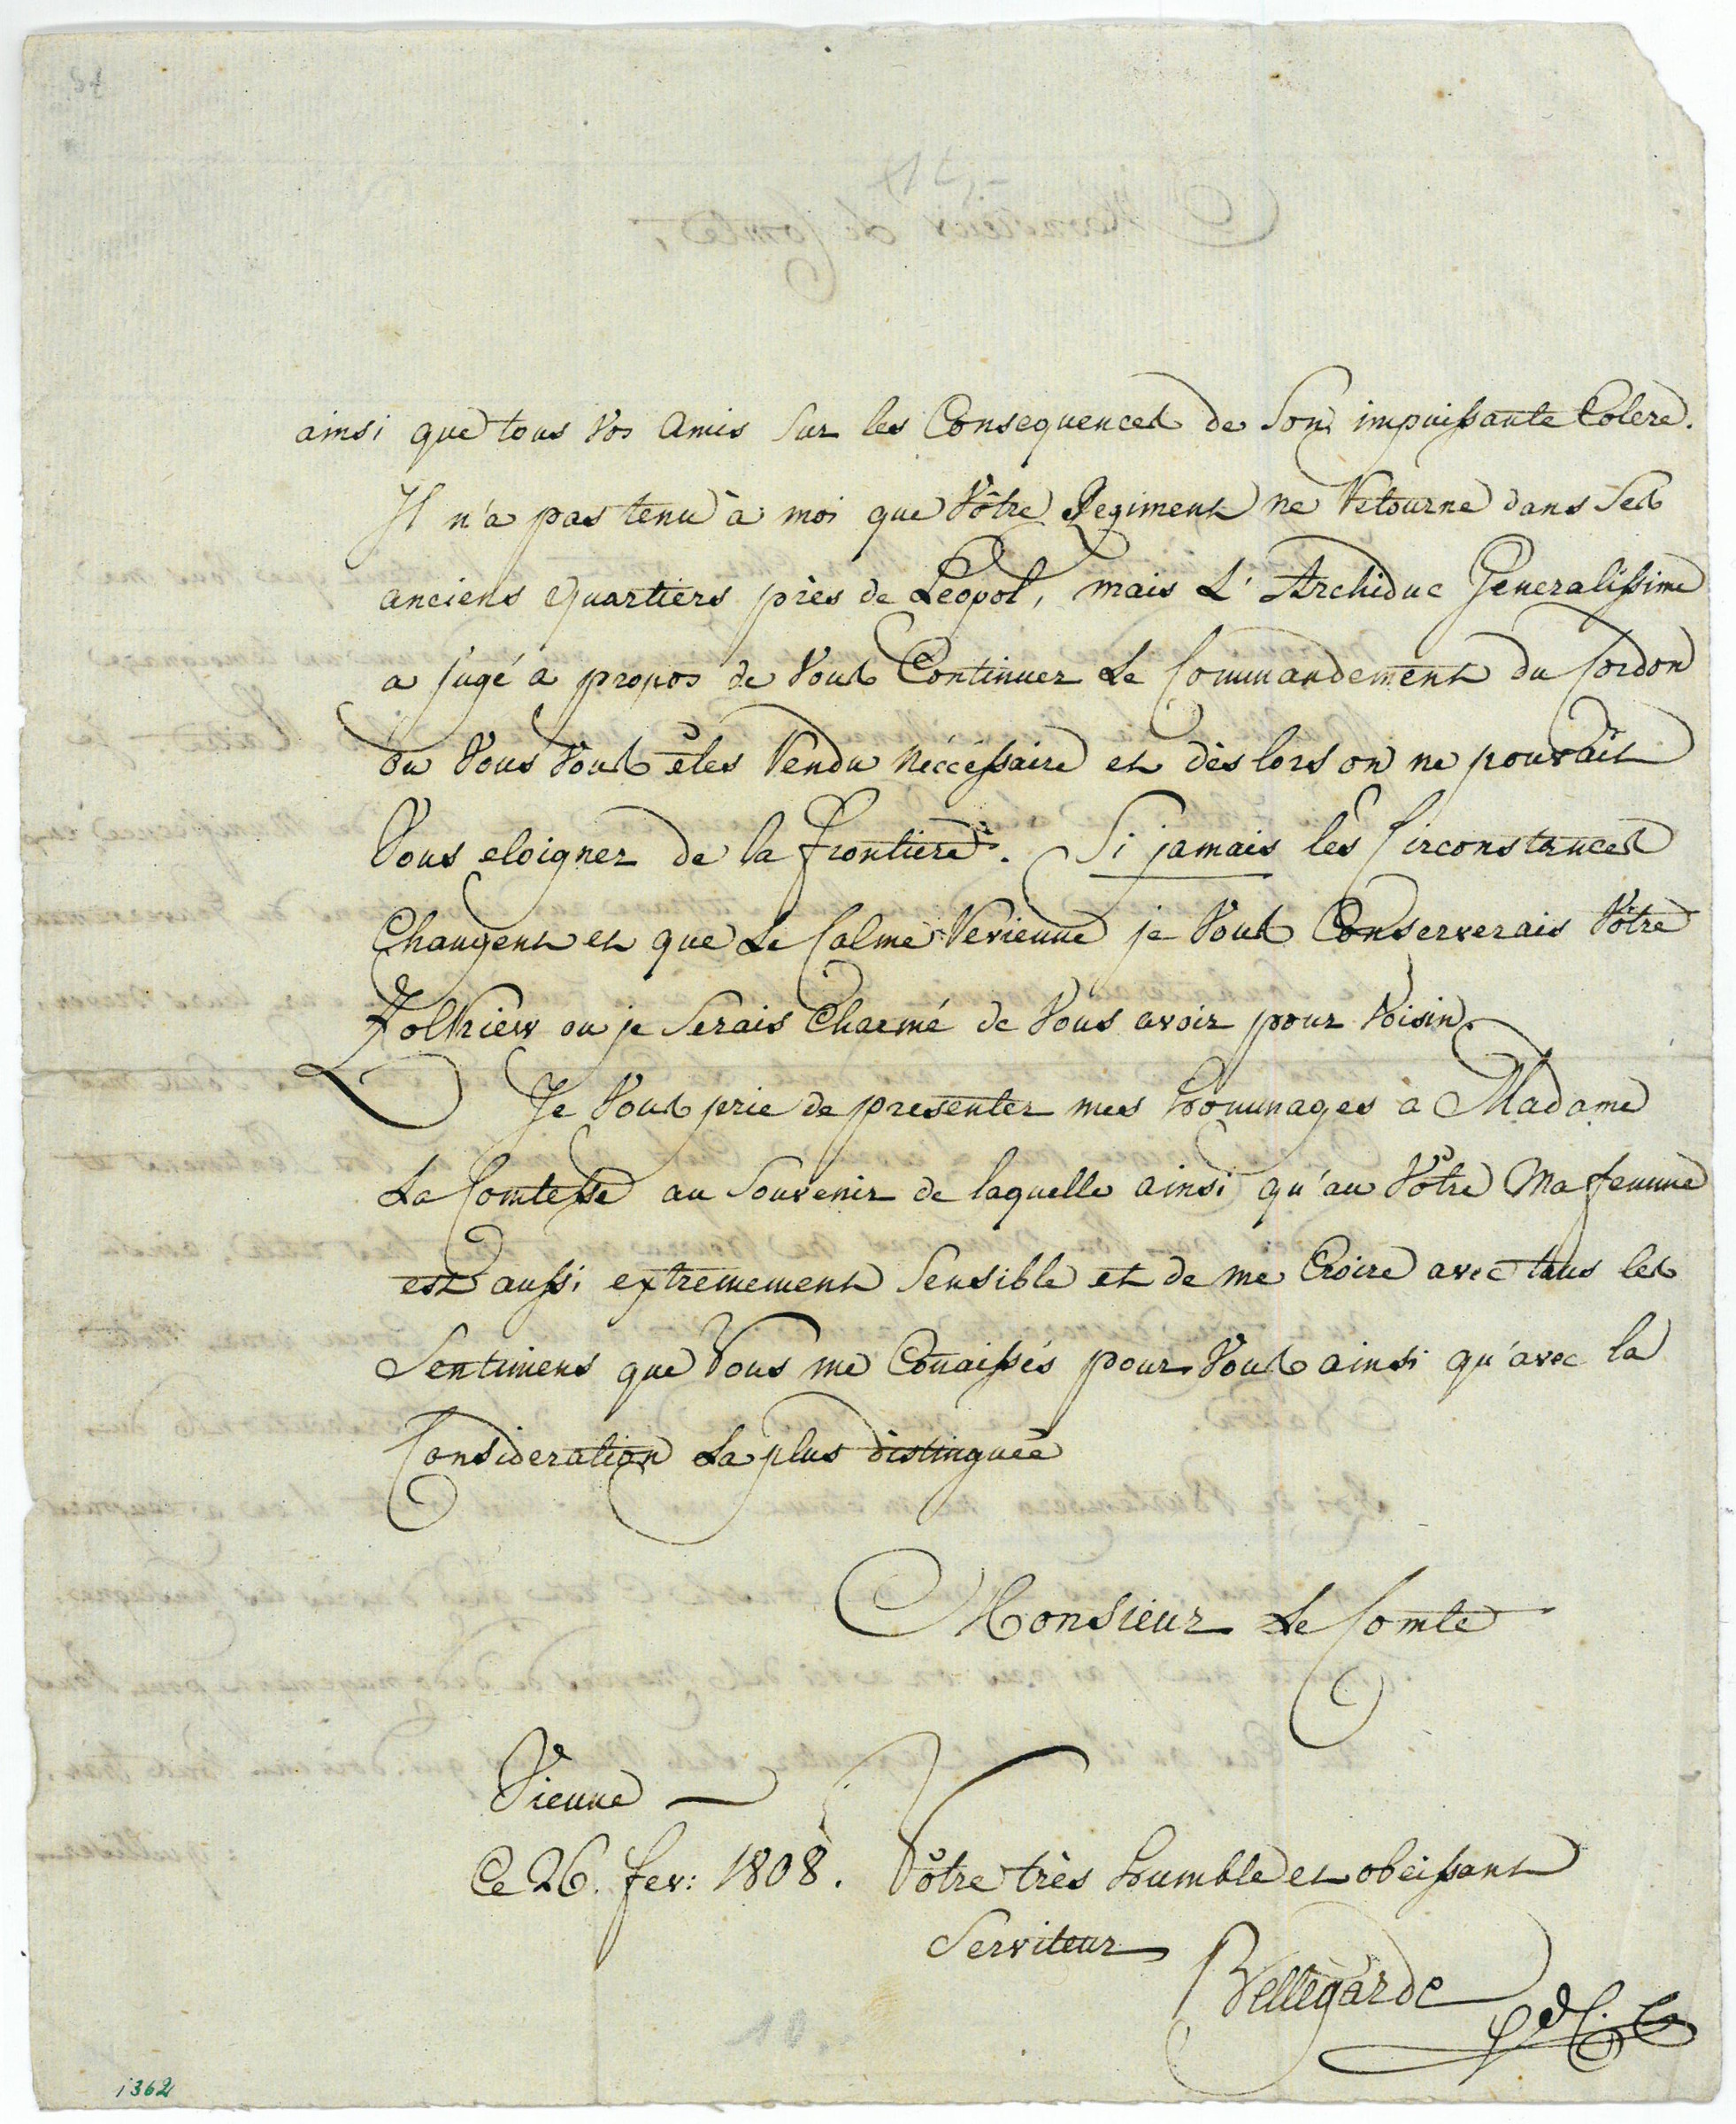 ainsi que tous Vos Amis Sur les Consequences de Son impuissante Colere.
Il n'a pas tenu à moi que Vôtre Regiment ne Retourne dans Ses
anciens Quartiers près de Léopol, mais L'Archiduc Generalissime
a jugé a propos de Vous Continuer Le Commandement du Cordon
ou Vous Vous etes Rendu Néccéssaire et dès lors on ne pouvait
Vous eloigner de la frontiere. Si jamais les Circonstances
Changent et que Le Calme Revienne je Vous Conserverais Vôtre
Zolkiew ou je Serais Charmé de Vous avoir pour Voisin.
Je Vous prie de presenter mes hommages à Madame
La Comtesse au Souvenir de laquelle ainsi qu'au Vôtre Ma femme
est aussi extremement Sensible et de me Croire avec tous les
Sentimens que Vous me Conaissés pour Vous ainsi qu'avec la
Consideration La plus distinguée
Monsieur Le Comte
Vienne —
Ce 26. fev: 1808. Vôtre très humble et obeissant
Serviteur
Bellegarde
1362